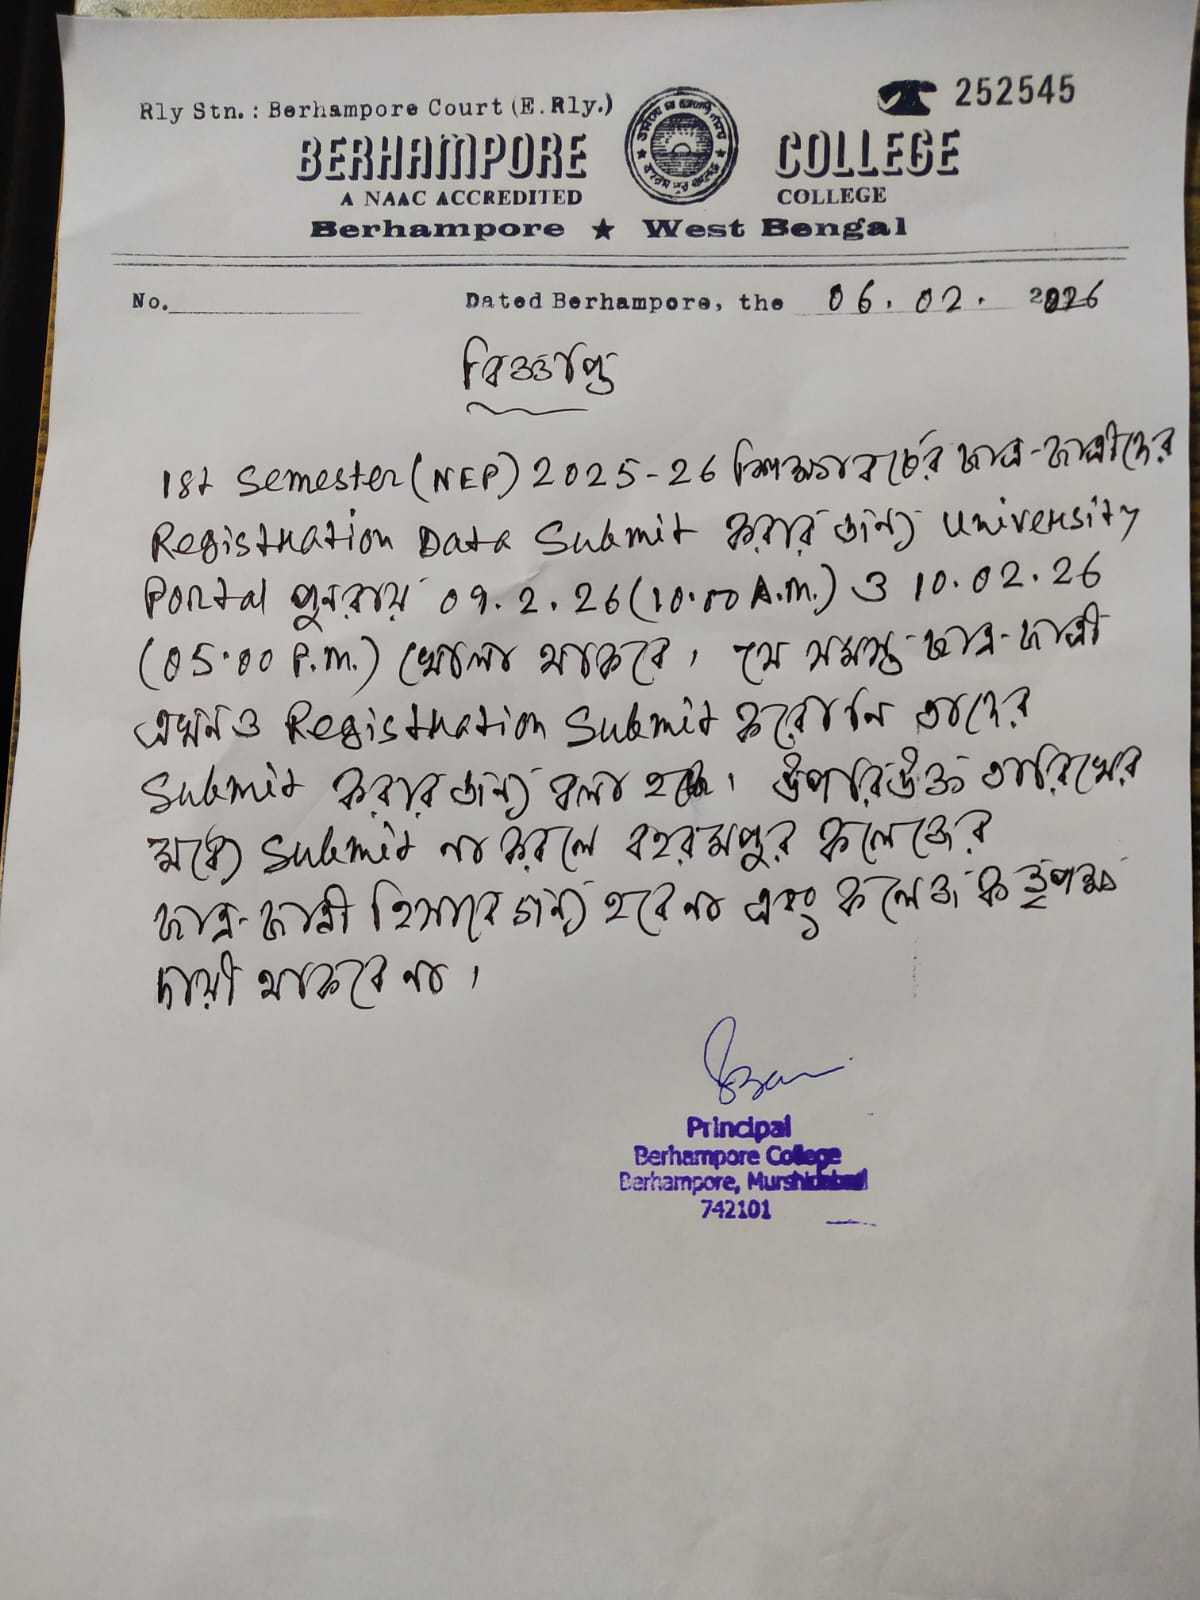 Rly Stn. : Berhampore Court (E. Rly.)
252545
BERHAMPORE COLLEGE
A NAAC ACCREDITED COLLEGE
Berhampore ★ West Bengal
No.
Dated Berhampore, the 06.02. 2026
বিজ্ঞপ্তি
1st Semester (NEP) 2025-26 শিক্ষাবর্ষের ছাত্র-ছাত্রীদের
Registration Data Submit করার জন্য University
Portal পুনরায় 09.2.26 (10.00 A.M.) ও 10.02.26
(05.00 P.M.) খোলা থাকবে। যে সমস্ত ছাত্র-ছাত্রী
এখনও Registration Submit করোনি তাদের
Submit করার জন্য বলা হচ্ছে। উপরিউক্ত তারিখের
মধ্যে Submit না করলে বহরমপুর কলেজের
ছাত্র-ছাত্রী হিসাবে গন্য হবে না এবং কলেজ কর্তৃপক্ষ
দায়ী থাকবে না।
Principal
Berhampore College
Berhampore, Murshidabad
742101